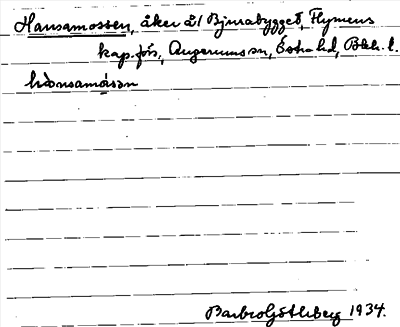 Hansamossen, åker å Bjurabygget, Flymens
kap.förs., Augerums sn, Östra hd, Blek. l.
hånsamåsən
Barbro Götheberg 1934.